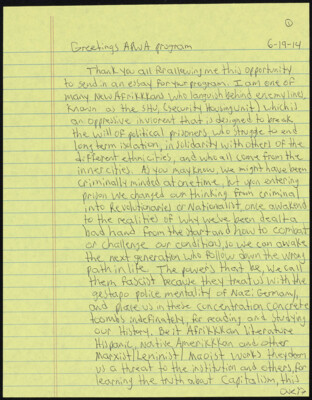 ①
Greetings ARWA program 6-19-14
Thank you all for allowing me this opportunity
to send in an essay for your program. I am one of
many New Afrikkans who languish behind enemy lines,
known as the SHU, (security Housing unit) which is
an oppressive invioremt that is designed to break
the will of political prisoners, who struggle to end
long term isolation, in solidarity with others of the
different ethnicities, and who all come from the
inner cities. As you may know, we might have been
criminally minded at one time, but upon entering
prison we changed our thinking from criminal
into Revolutionaries or Nationalist, one awakend
to the realities of why we've been dealt a
bad hand from the start and how to combat
or challenge our condition, so we can awake
the next generation who follow down the wrong
path in life. The powers that be, we call
them fascist because they treat us with the
gestapo police mentality of Nazi Germany,
and place us in these concentration concrete
tombs indefinately, for reading and studying
our History. Be it Afrikkkan literature
Hispanic, Native Amerikkkan and other
Marxist/Leninist/Maoist works they deem
us a threat to the institution and others, for
learning the truth about Capitalism, this